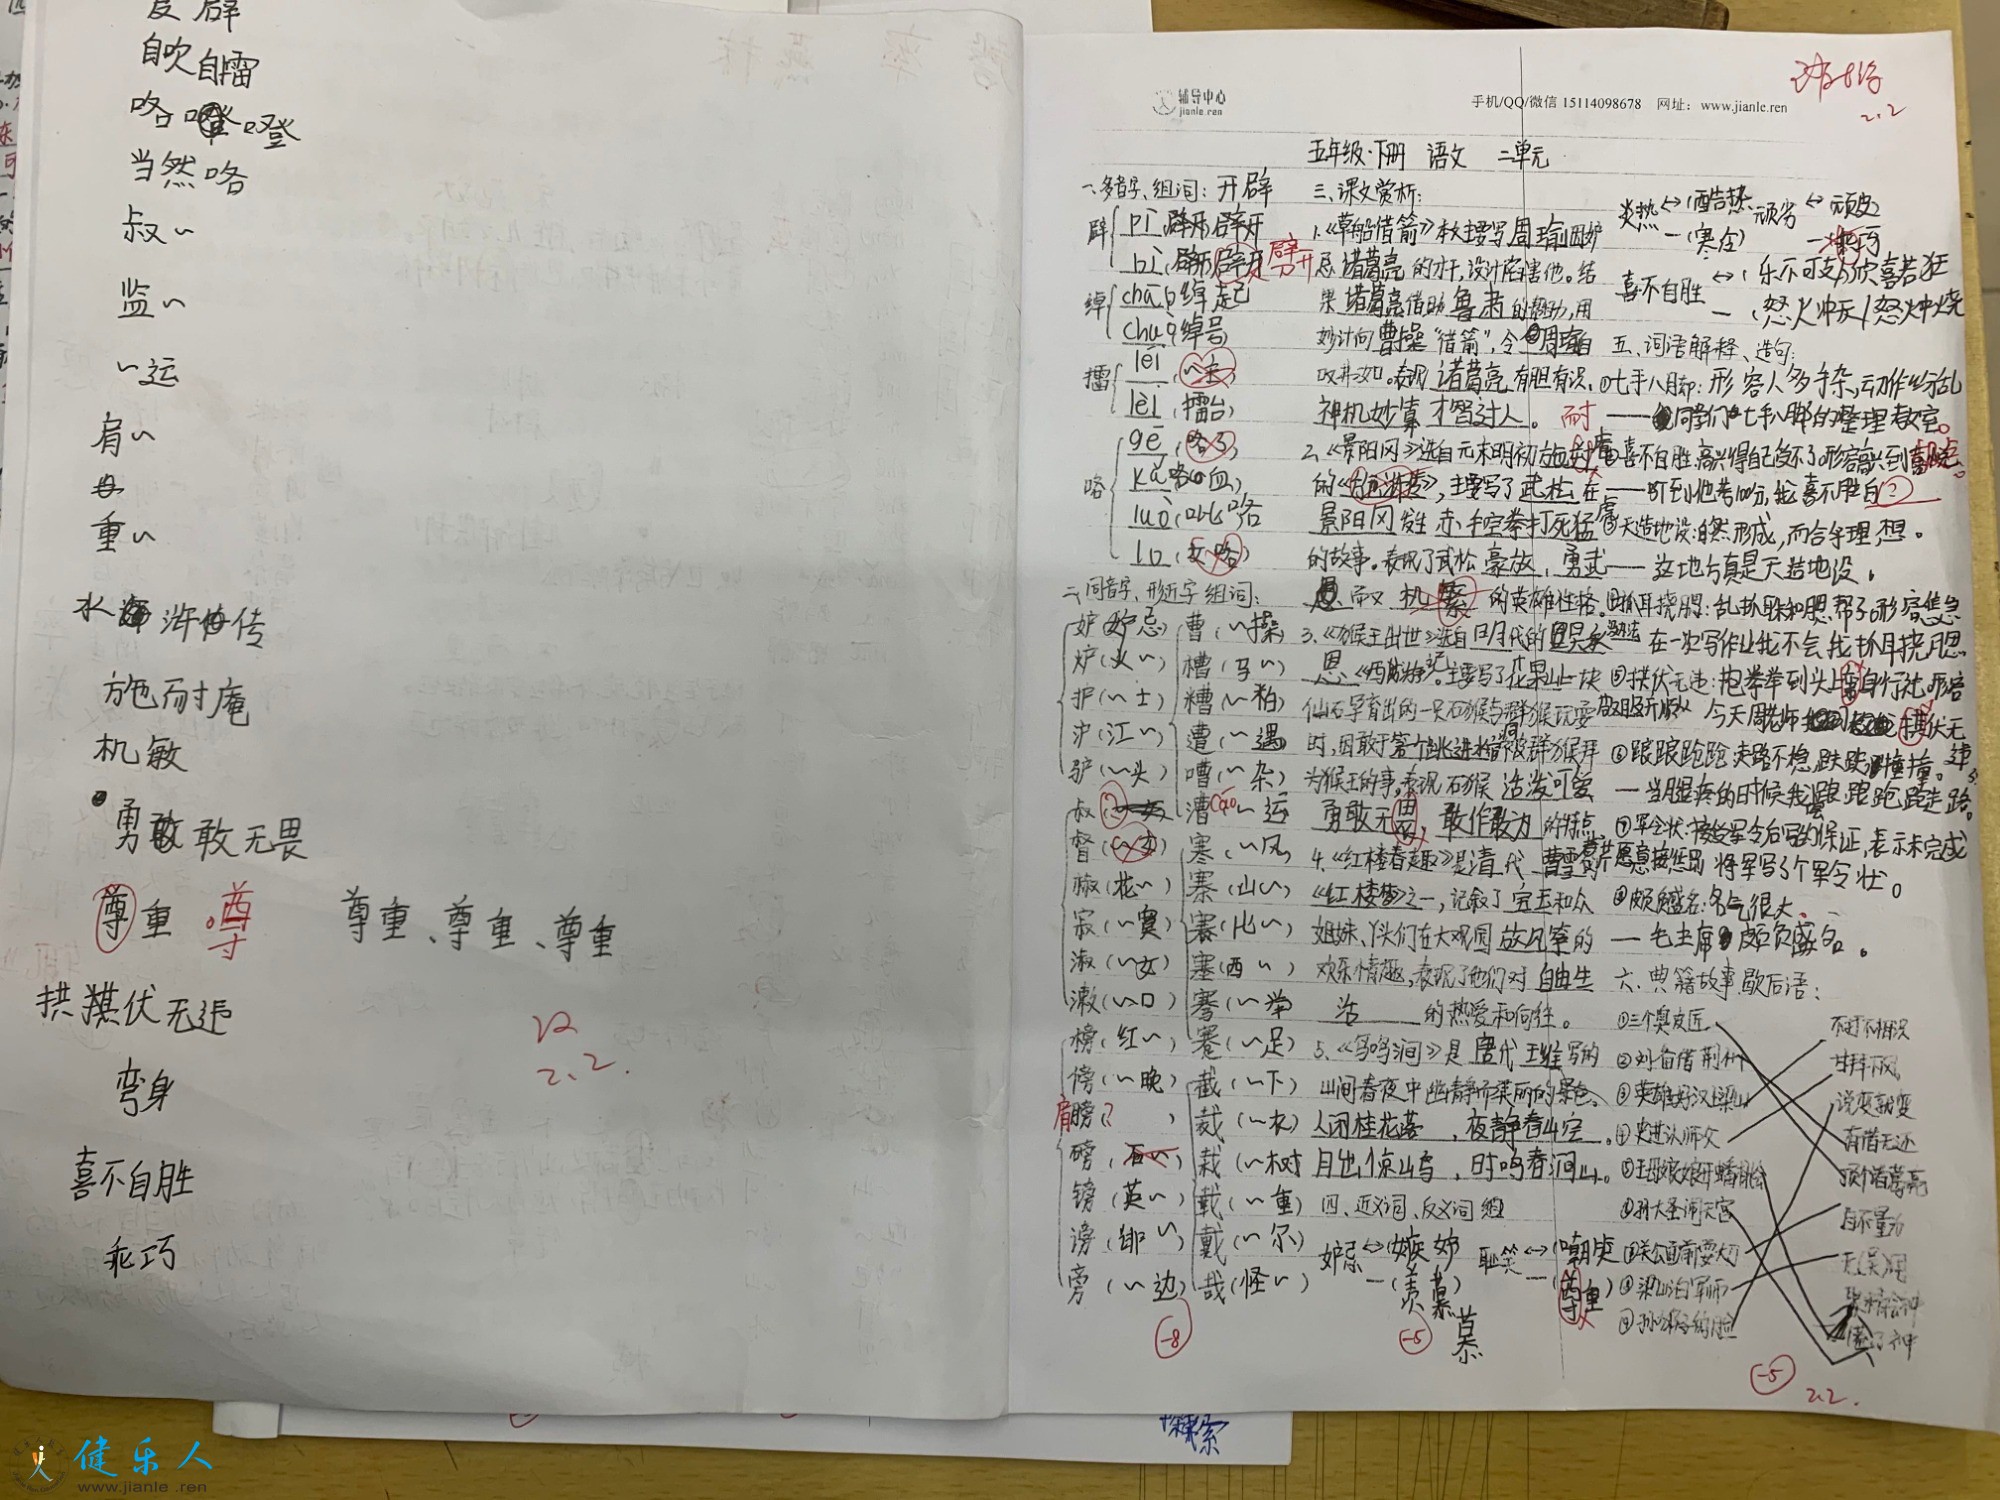 自吹自擂
咯噔噔
当然咯
叔~
监~
~运
肩~
重~
水浒传
施耐庵
机敏
勇敢无畏
尊重 尊 尊重、尊重、尊重
拱伏无违
2.2.
弯身
喜不自胜
乖巧
辅导中心
jianle.ren
手机/QQ/微信 15114098678 网址: www.jianle.ren
2.2
五年级·下册 语文 二单元
一、多音字、组词: 开辟
辟
绰
chāo 绰起
chuò 绰号
擂
lèi (擂台)
咯
gē
kǎ 咯血
luò
lo
二、同音字、形近字组词:
妒(妒忌)
炉(火~)
护(~士)
沪(江~)
驴(~头)
叔
督
椒(花~)
寂(~寞)
淑(~女)
漱(~口)
榜(红~)
傍(~晚)
膀(? )
磅(石~)
镑(英~)
谤(~)
旁(~边)
-8
曹(~操)
槽(马~)
糟(~粕)
遭(~遇)
嘈(~杂)
漕 cáo ~运
寒(~风)
寨(山~)
赛(比~)
塞(西~)
謇(~)
蹇(~足)
截(~下)
裁(~衣)
栽(~树)
载(~重)
戴(~尔)
哉(怪~)
三、课文赏析:
1.《草船借箭》本文主要写周瑜因妒
忌诸葛亮的才干,设计陷害他。结
果诸葛亮借助鲁肃的帮助,用
妙计向曹操"借箭",令周瑜自
叹弗如。表现诸葛亮有胆有识、
神机妙算 才智过人。 耐
2、《景阳冈》选自元末明初施耐庵
的《水浒传》,主要写了武松在
景阳冈发生赤手空拳打死猛虎
的故事。表现了武松豪放、勇武
的英雄性格。
3.《猴王出世》选自明代的吴承
恩《西游记》。主要写了花果山上一块
仙石孕育出的一只石猴与群猴玩耍
时,因敢于第一个跳进水帘洞被群猴拜
为猴王的事,表现石猴活泼可爱
勇敢无畏,敢作敢为的特点
4.《红楼春趣》是清代曹雪芹
《红楼梦》之一,记叙了宝玉和众
姐妹、丫头们在大观园放风筝的
欢乐情趣,表现了他们对自由生
活 的热爱和向往。
5、《鸟鸣涧》是唐代王维写的
山间春夜中幽静而美丽的景色。
人闲桂花落,夜静春山空。
月出惊山鸟,时鸣春涧中。
四、近义词、反义词组
妒忌↔(嫉妒)
—(羡慕)
慕
-5
耻笑↔(嘲笑)
—(尊重)
炎热↔(酷热)
—(寒冷)
顽劣↔顽皮
—乖巧
喜不自胜↔(乐不可支/欣喜若狂
—(怒火冲天/怒火中烧
五、词语解释、造句:
①七手八脚:形容人多手杂,动作纷乱
——同学们七手八脚的整理教室。
②喜不自胜:高兴得自己受不了形容高兴到极点。
——听到他考100分,我喜不胜自
③天造地设:自然形成,而合乎理想。
——这地方真是天造地设。
④抓耳挠腮:乱抓耳和腮帮子形容焦急
在一次写作业我不会,我抓耳挠腮
⑤拱伏无违:抱拳举到头上
⑥踉踉跄跄:走路不稳,跌跌撞撞。
—当腿疼的时候我踉踉跄跄走路。
⑦军令状:接受军令后写的保证,表示未完成
将军写了个军令状。
⑧颇负盛名:名气很大。
—毛主席颇负盛名。
六、典籍故事歇后语:
①三个臭皮匠
②刘备借荆州
③英雄好汉上梁山
④史进认师父
⑤王母娘娘开蟠桃会
⑥孙大圣闹天宫
⑦关公面前耍大刀
⑧梁山泊军师
⑨孙猴子的脸
不打不相识
甘拜下风
说变就变
有借无还
顶个诸葛亮
自不量力
无(吴)用
-5
2.2.
探索
健乐人
www.jianle.ren